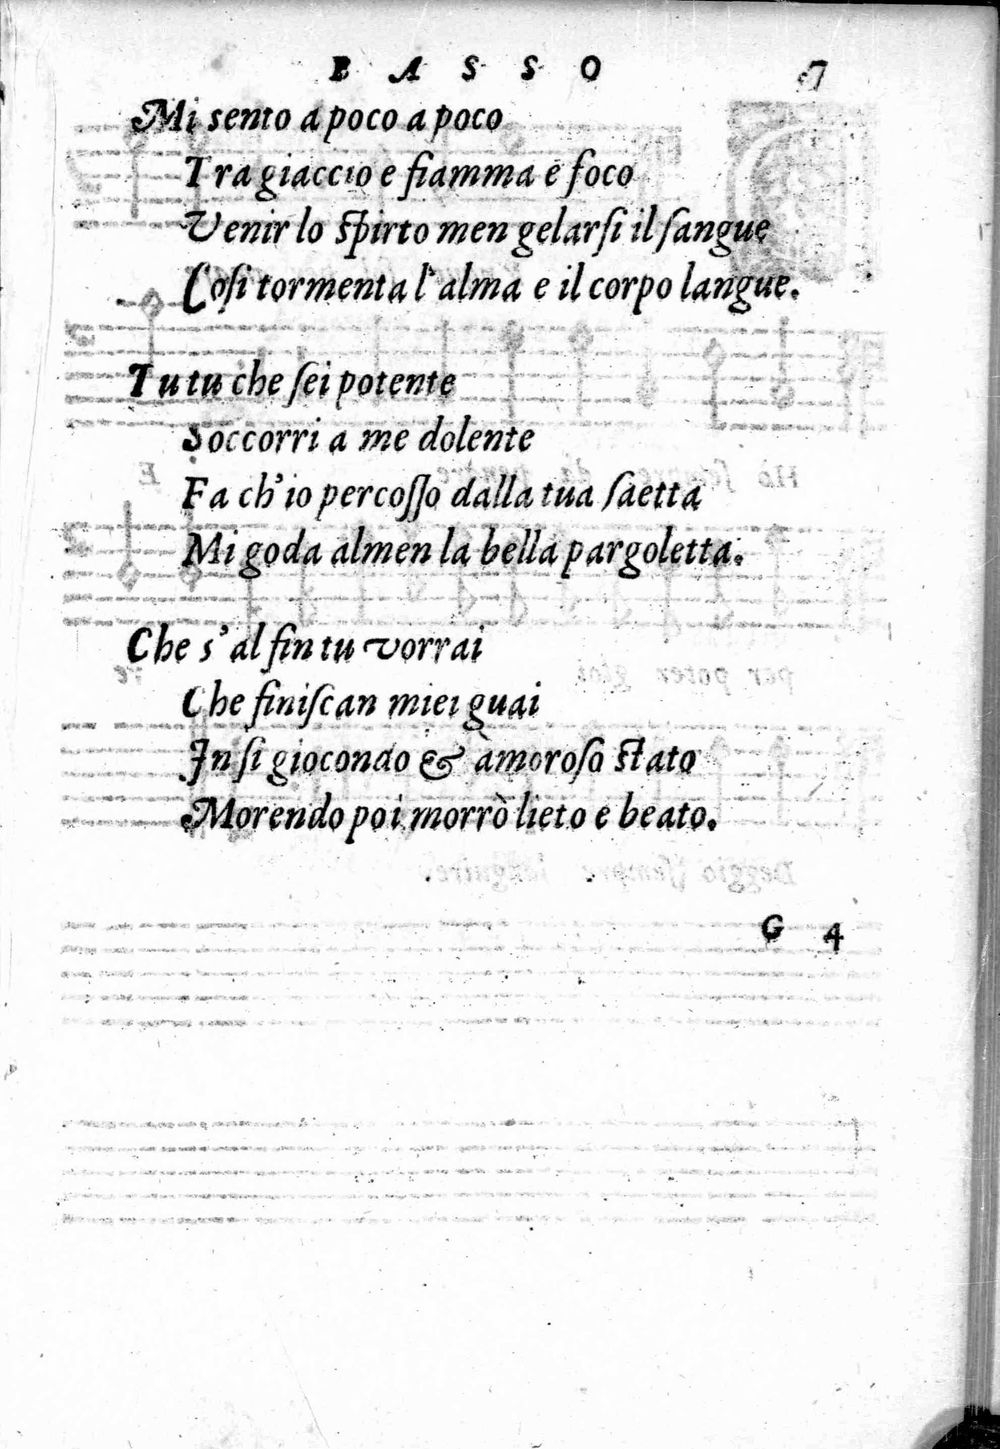 B A S S O 7
Mi sento a poco a poco
Tra giaccio e fiamma e foco
Venir lo spirto men gelarſi il ſangue
Coſi tormenta l'alma e il corpo langue.
Tu tu che ſei potente
Soccorri a me dolente
Fa ch'io percoſſo dalla tua ſaetta
Mi goda almen la bella pargoletta.
Che s'al fin tu vorrai
Che finiſcan miei guai
In ſi giocondo & àmoroſo ſtato
Morendo poi morrò lieto e beato.
G 4